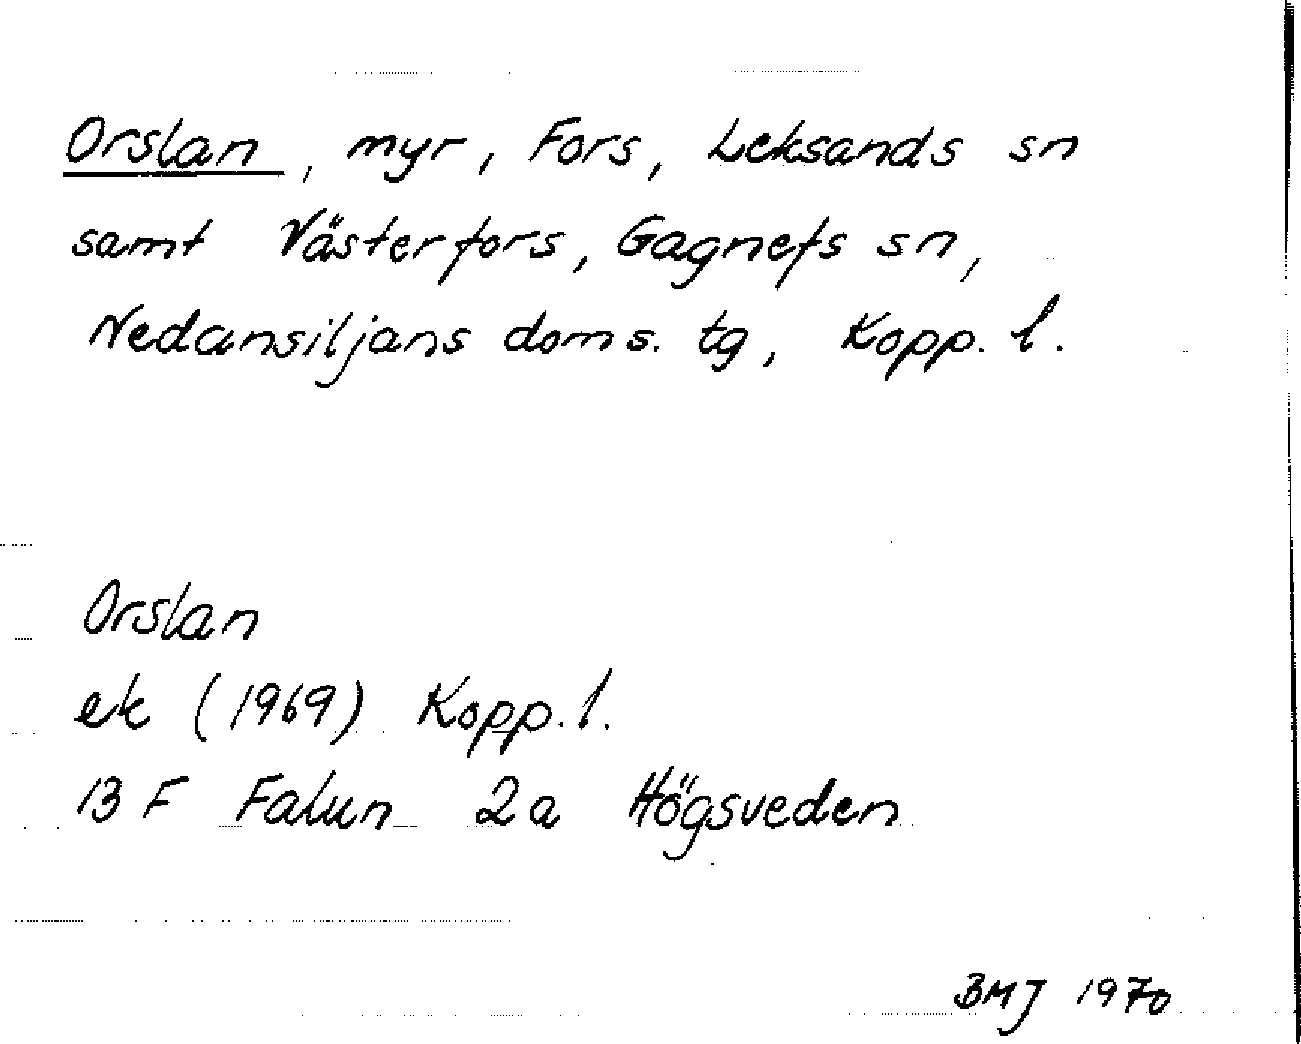 Orslan, myr, Fors, Leksands sn
samt Västerfors, Gagnefs sn,
Nedansiljans doms. tg, Kopp. l.
Orslan
ek (1969) Kopp. l.
13 F Falun 2a Högsveden
BMJ 1970